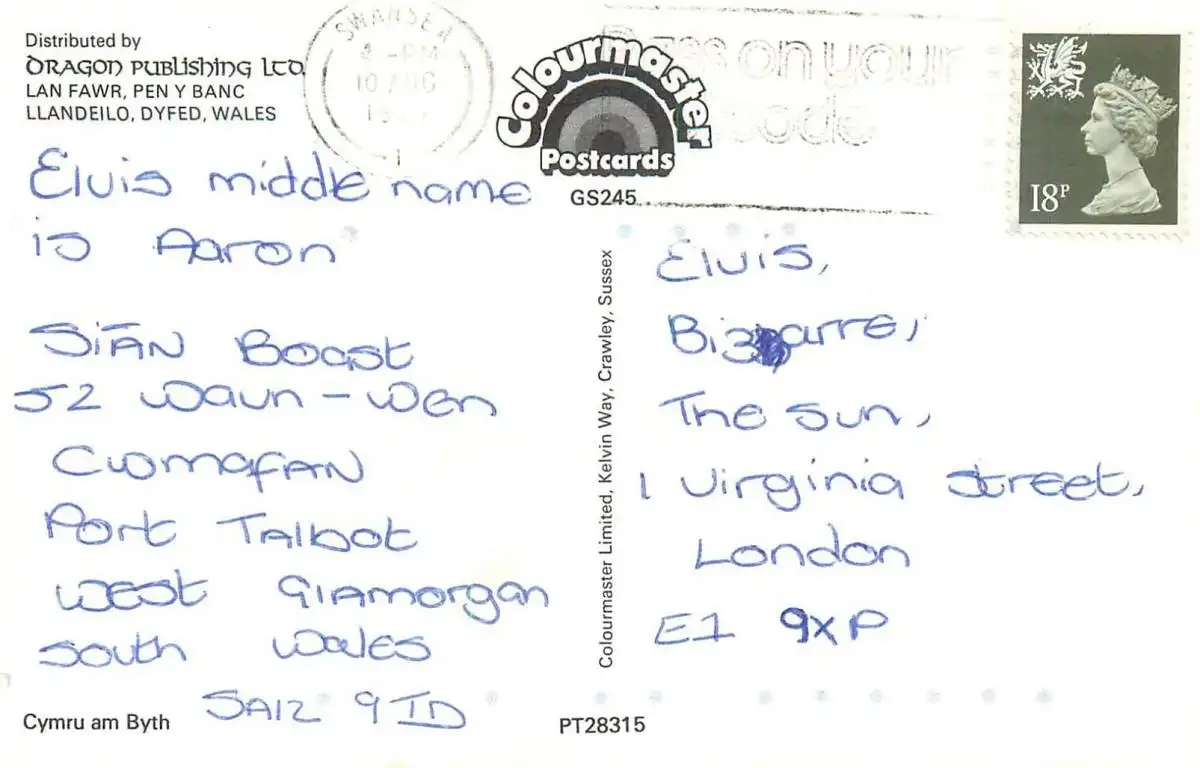 Distributed by
DRAGON PUBLISHING LTD.
LAN FAWR, PEN Y BANC
LLANDEILO, DYFED, WALES
SWANSEA
4 - PM
10 AUG
Colourmaster
Postcards
GS245
on your
code
18P
Elvis middle name
is Aaron
SIÂN Boast
52 Waun-Wen
Cwmafan
Port Talbot
West Glamorgan
South Wales
SA12 9TD
Cymru am Byth
Colourmaster Limited, Kelvin Way, Crawley, Sussex
Elvis,
Bizarre,
The Sun,
1 Virginia Street,
London
E1 9XP
PT28315